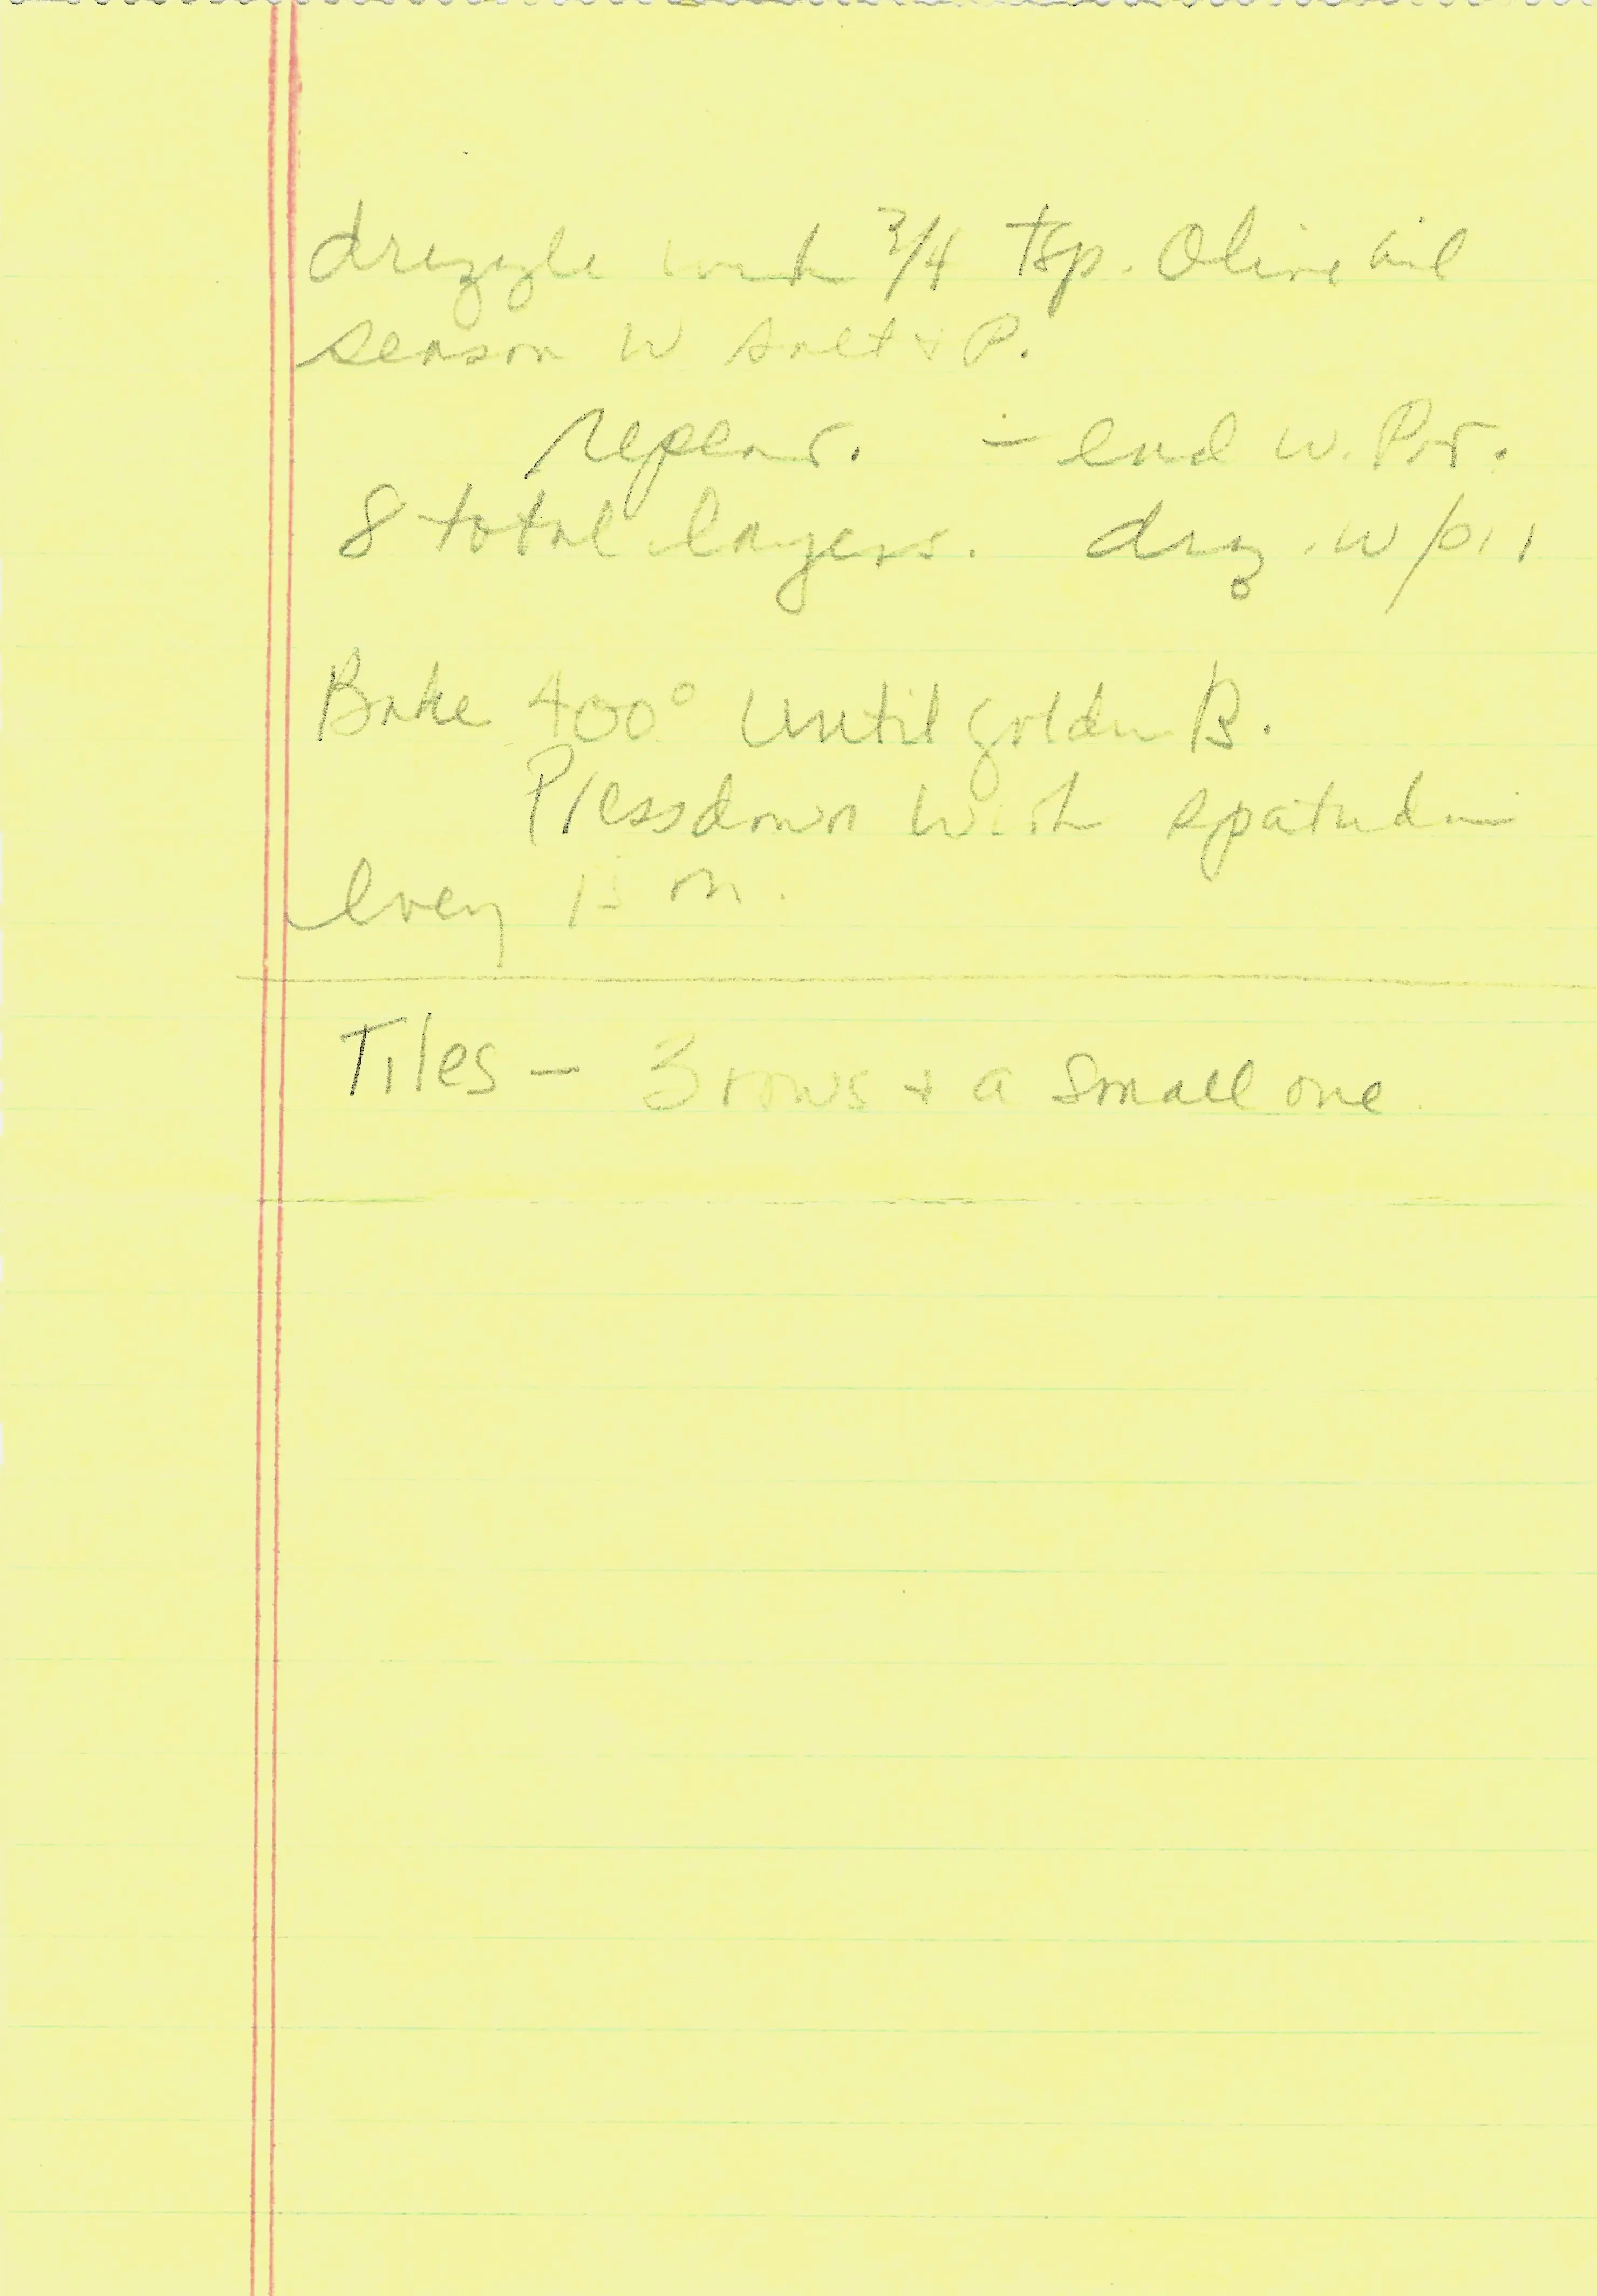 drizzle with 3/4 tsp. Olive oil
season w salt + P.
repeat. - end w. Pot.
8 total layers. driz. w/oil
Bake 400° until golden B.
Press down with spatula
every 15 m.
Tiles - 3 rows + a small one